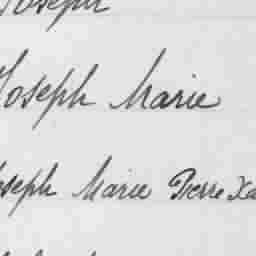 Joseph
Joseph Marie
Joseph Marie Pierre Xa